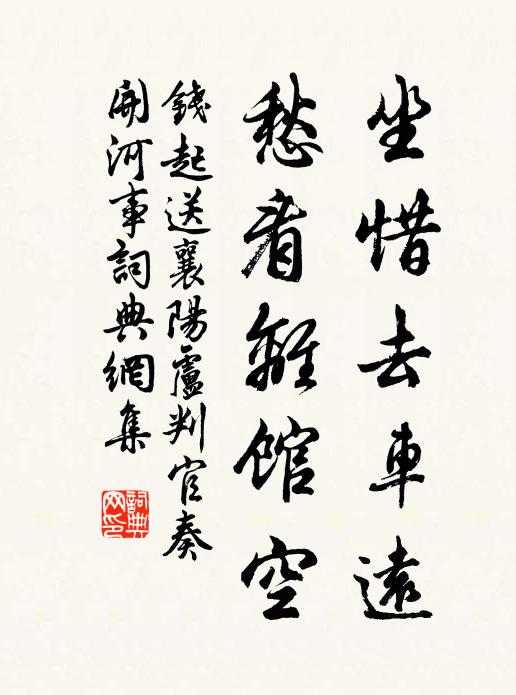 坐惜去車遠
愁看離館空
錢起送襄陽盧判官奏
開河事詞典網集
詞典网印